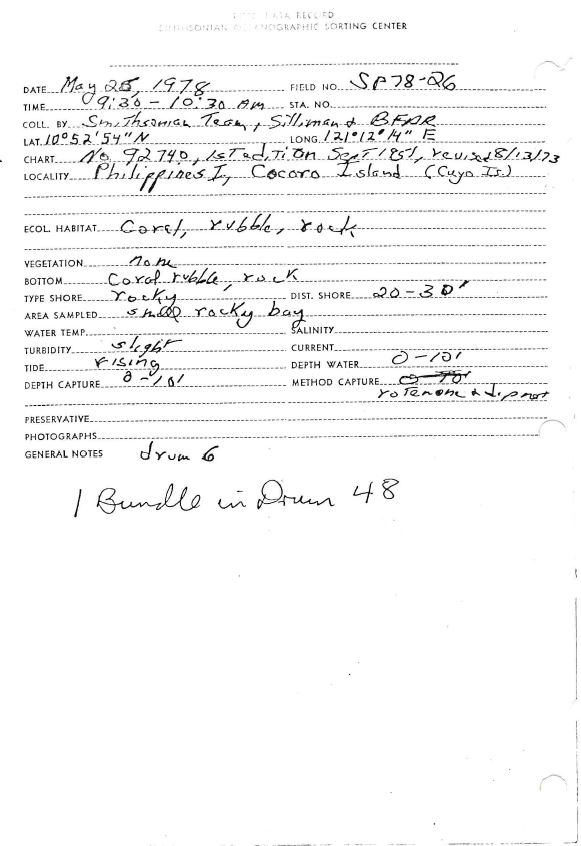 DATA RECORD
SMITHSONIAN OCEANOGRAPHIC SORTING CENTER
DATE May 25, 1978 FIELD NO. SP78-26
TIME 09:30 - 10:30 Am STA. NO.
COLL. BY Smithsonian Team, Silliman & BFAR
LAT. 10°52'54" N LONG. 121°12'14" E
CHART No. 92740, 1st edition Sept 1951, revised 8/13/73
LOCALITY Philippines I, Cocoro Island (Cuyo Is)
ECOL. HABITAT Coral, rubble, rock
VEGETATION none
BOTTOM Coral rubble, rock
TYPE SHORE rocky DIST. SHORE 20-30'
AREA SAMPLED small rocky bay
WATER TEMP. SALINITY
TURBIDITY slight CURRENT
TIDE rising DEPTH WATER 0-10'
DEPTH CAPTURE 0-10' METHOD CAPTURE 0-10'
rotenone & dipnet
PRESERVATIVE
PHOTOGRAPHS
GENERAL NOTES drum 6
1 Bundle in Drum 48